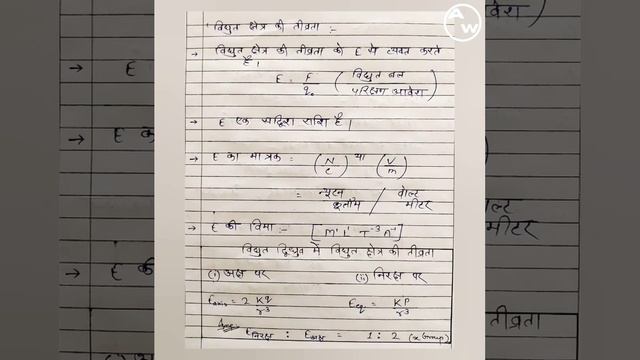 AW
विद्युत क्षेत्र की तीव्रता :-
→ विद्युत क्षेत्र की तीव्रता को E से व्यक्त करते
है।
E = F/q₀ ( विद्युत बल / परिक्षण आवेश )
→ E एक सदिश राशि है।
→ E का मात्रक = (N/C) या (V/m)
= न्यूटन / कूलॉम / वोल्ट / मीटर
→ E की विमा :- [M¹L¹T⁻³A⁻¹]
विद्युत द्विध्रुव में विद्युत क्षेत्र की तीव्रता
(i) अक्ष पर (ii) निरक्ष पर
= 2 Kq/r³ Eeq = KP/r³
E निरक्ष : E अक्ष = 1 : 2